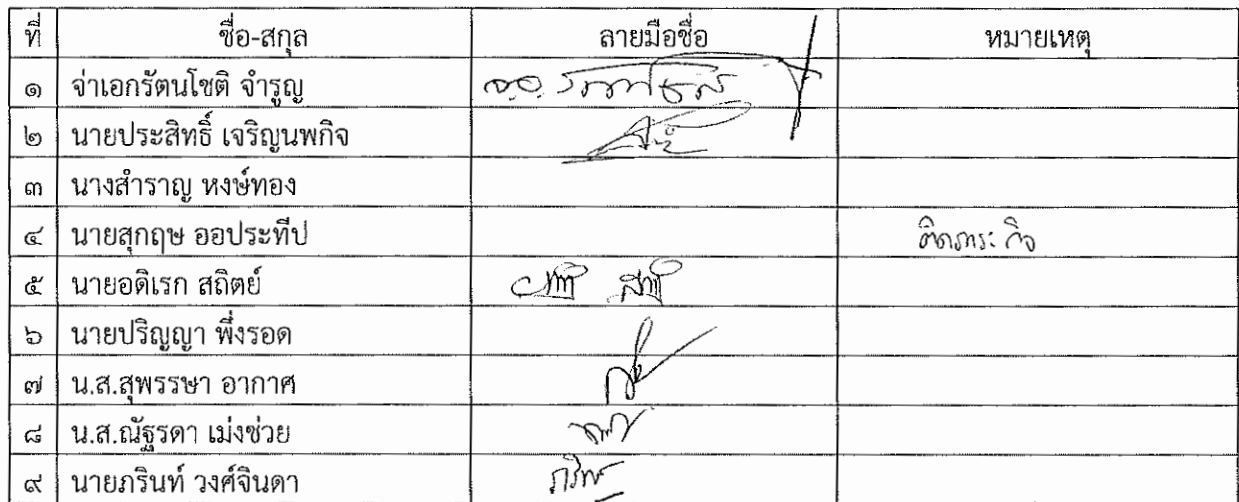 ที่ ชื่อ-สกุล ลายมือชื่อ หมายเหตุ
๑ จ่าเอกรัตนโชติ จำรูญ จ.อ.
๒ นายประสิทธิ์ เจริญนพกิจ
๓ นางสำราญ หงษ์ทอง
๔ นายสุกฤษ ออประทีป ติดภาระกิจ
๕ นายอดิเรก สถิตย์
๖ นายปริญญา พึ่งรอด
๗ น.ส.สุพรรษา อากาศ
๘ น.ส.ณัฐรดา เม่งช่วย
๙ นายภรินท์ วงศ์จินดา